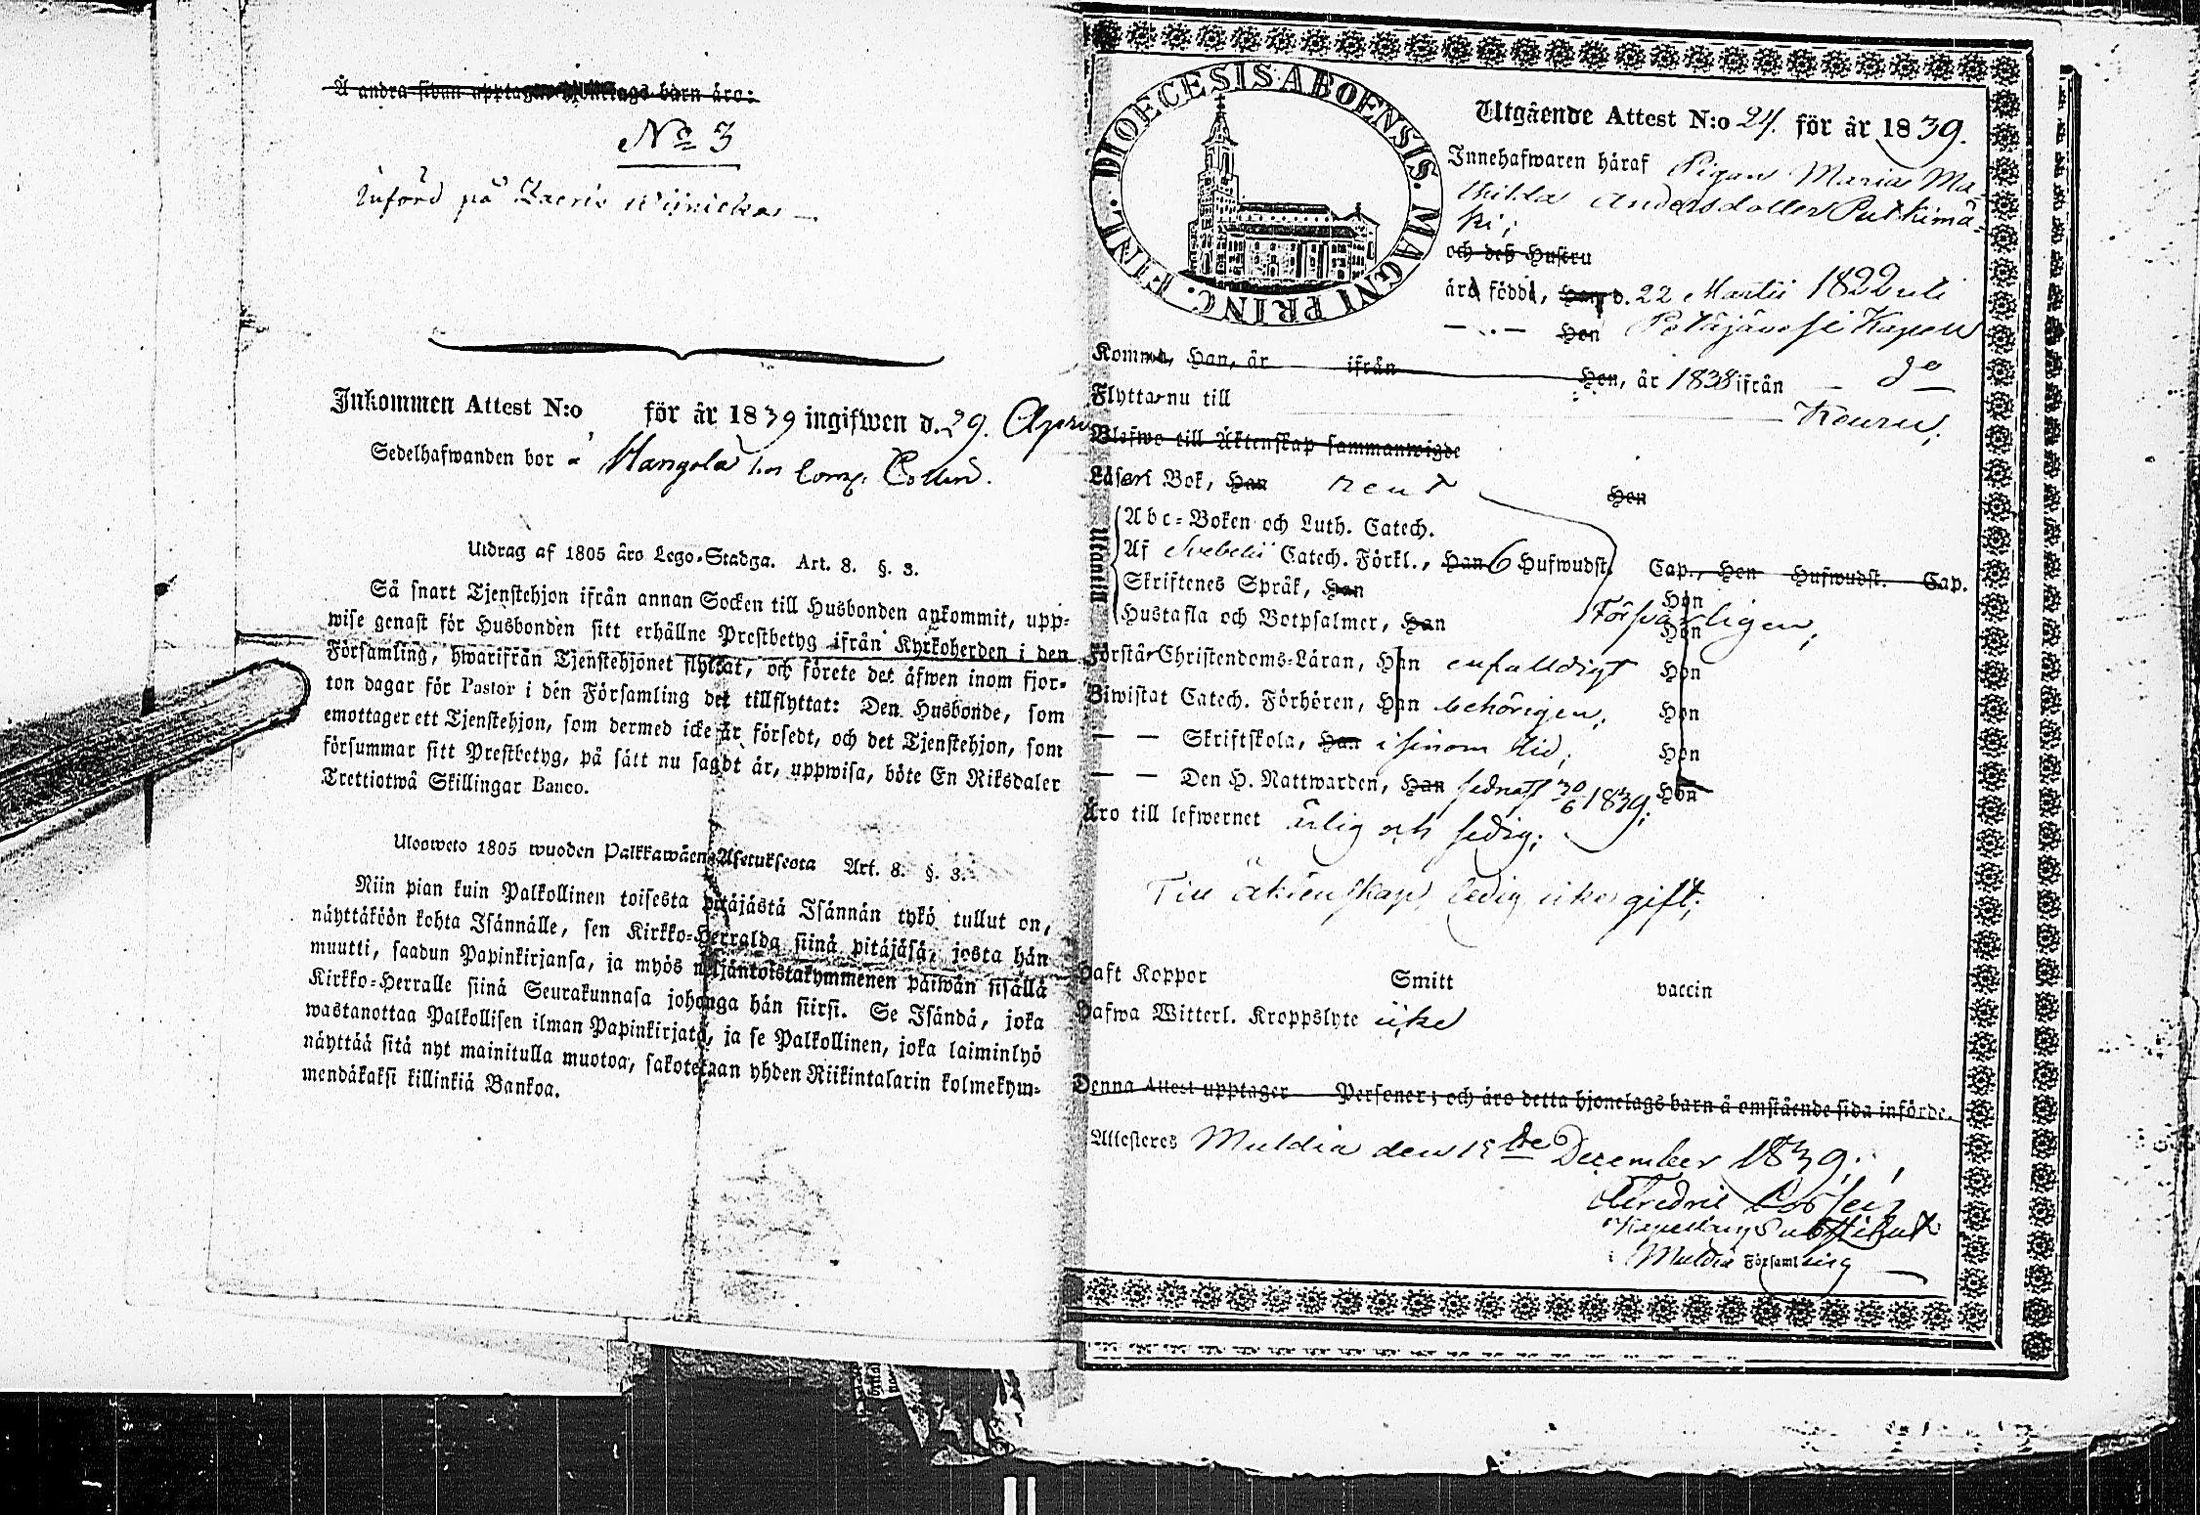 Å andra sidan upptagne hjonelags barn äro:
No 3
Införd på
Inkommen Attest N:o för år 1839 ingifwen d. 29. April
Sedelhafwanden bor å Mangola hos Comm. Collin.
Utdrag af 1805 års Lego-Stadga. Art. 8. §. 3.
Så snart Tjenstehjon ifrån annan Socken till Husbonden ankommit, upp-
wise genast för Husbonden sitt erhållne Prestbetyg ifrån Kyrkoherden i den
Församling, hwarifrån Tjenstehjonet flyttat, och förete det äfwen inom fjor-
ton dagar för Pastor i den Församling det tillflyttat: Den Husbonde, som
emottager ett Tjenstehjon, som dermed icke är försedt, och det Tjenstehjon, som
försummar sitt Prestbetyg, på sätt nu sagdt är, uppwisa, böte En Riksdaler
Trettiotwå Skillingar Banco.
Ulosweto 1805 wuoden Palkkawäen-Asetuksesta Art. 8. §. 3.
Niin pian kuin Palkollinen toisesta pitäjästä Isännän tykö tullut on,
näyttäköön kohta Isännälle, sen Kirkko-Herralda siinä pitäjäsä, josta hän
muutti, saadun Papinkirjansa, ja myös neljäntoistakymmenen päiwän sisällä
Kirkko-Herralle siinä Seurakunnasa johonga hän siirsi. Se Isändä, joka
wastanottaa Palkollisen ilman Papinkirjatá, ja se Palkollinen, joka laiminlyö
näyttää sitä nyt mainitulla muotoa, sakotetaan yhden Riikintalarin kolmekym-
mendäkaksi killinkiä Bankoa.
DIOECESIS ABOENSIS. MAGNI PRINC. FINL.
Utgående Attest N:o 24. för år 1839.
Innehafwaren häraf Pigan Maria Ma-
thilda Andersdotter Putkimä-
ki;
och deß Hustru
äro födde, Han d. 22 Martii 1822 uti
— . — Hon Pätäjävesi Kapell
Komma, Han, år ifrån Hon, år 1838 ifrån — do —
Flyttar nu till Keuru;
Blefwo till Äktenskap sammanwigde
Läser i Bok, Han rent Hon
Utantill
Abc-Boken och Luth. Catech.
Af Svebelii Catech. Förkl., Han 6 Hufwudst. Cap., Hon Hufwudst. Cap.
Skriftenes Språk, Han Hon
Hustafla och Botpsalmer, Han Försvarligen; Hon
Förstår Christendoms-Läran, Han enfaldigt Hon
Biwistat Catech. Förhören, Han behörigen; Hon
— — Skriftskola, Han i sinom tid; Hon
— — Den H. Nattwarden, Han sednast 30/6 1839; Hon
Äro till lefwernet ärlig och sedig;
Till äktenskap ledig icke gift;
Haft Koppor Smitt vaccin
Hafwa Witterl. Kroppslyte icke
Denna Attest upptager Personer; och äro detta hjonelags barn å omstående sida införde.
Attesteres Muldia den 15de December 1839;
Fredric
Kapellans Substitut
Muldia Församling